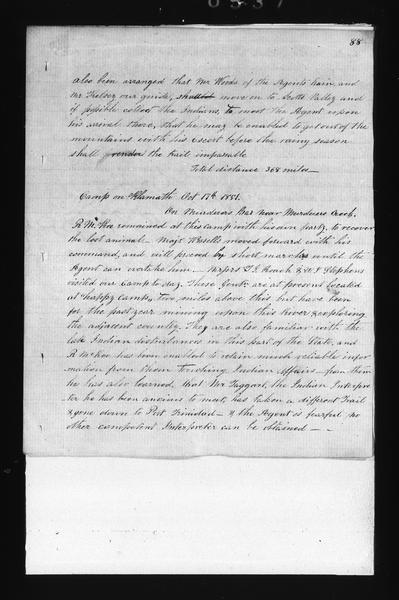 88
also been arranged that Mr Woods of the Agents train and
Mr Kelsey our guide, shall move on to Scotts Valley and
if possible collect the Indians, to meet the Agent upon
his arrival there, that he may be enabled to get out of the
mountains with his escort before the rainy season
shall render the trail impassable
Total distance 368 miles
Camp on Klamath Oct 17th 1851.
On Murderers Bar near Murderers Creek.
R McKee remained at this camp with his own party, to recover
the lost animals. Majr Wessells moved forward with his
command, and will proceed by short marches until the
Agent can overtake him. — Messrs T. S. Roach & W. J Stephens
visited our camp to day. These Gents are at present located
at happy camp, two miles above this but have been
for the past year mining upon this River & exploring
the adjacent country. They are also familiar with the
late Indian disturbances in this part of the State, and
R McKee has been enabled to obtain much reliable infor
mation from them touching Indian Affairs — from them
he has also learned, that Mr Taggart, the Indian Interpre
ter he has been anxious to meet, has taken a different trail
& gone down to Port Trinidad — & the Agent is fearful no
other competent Interpreter can be obtained — -